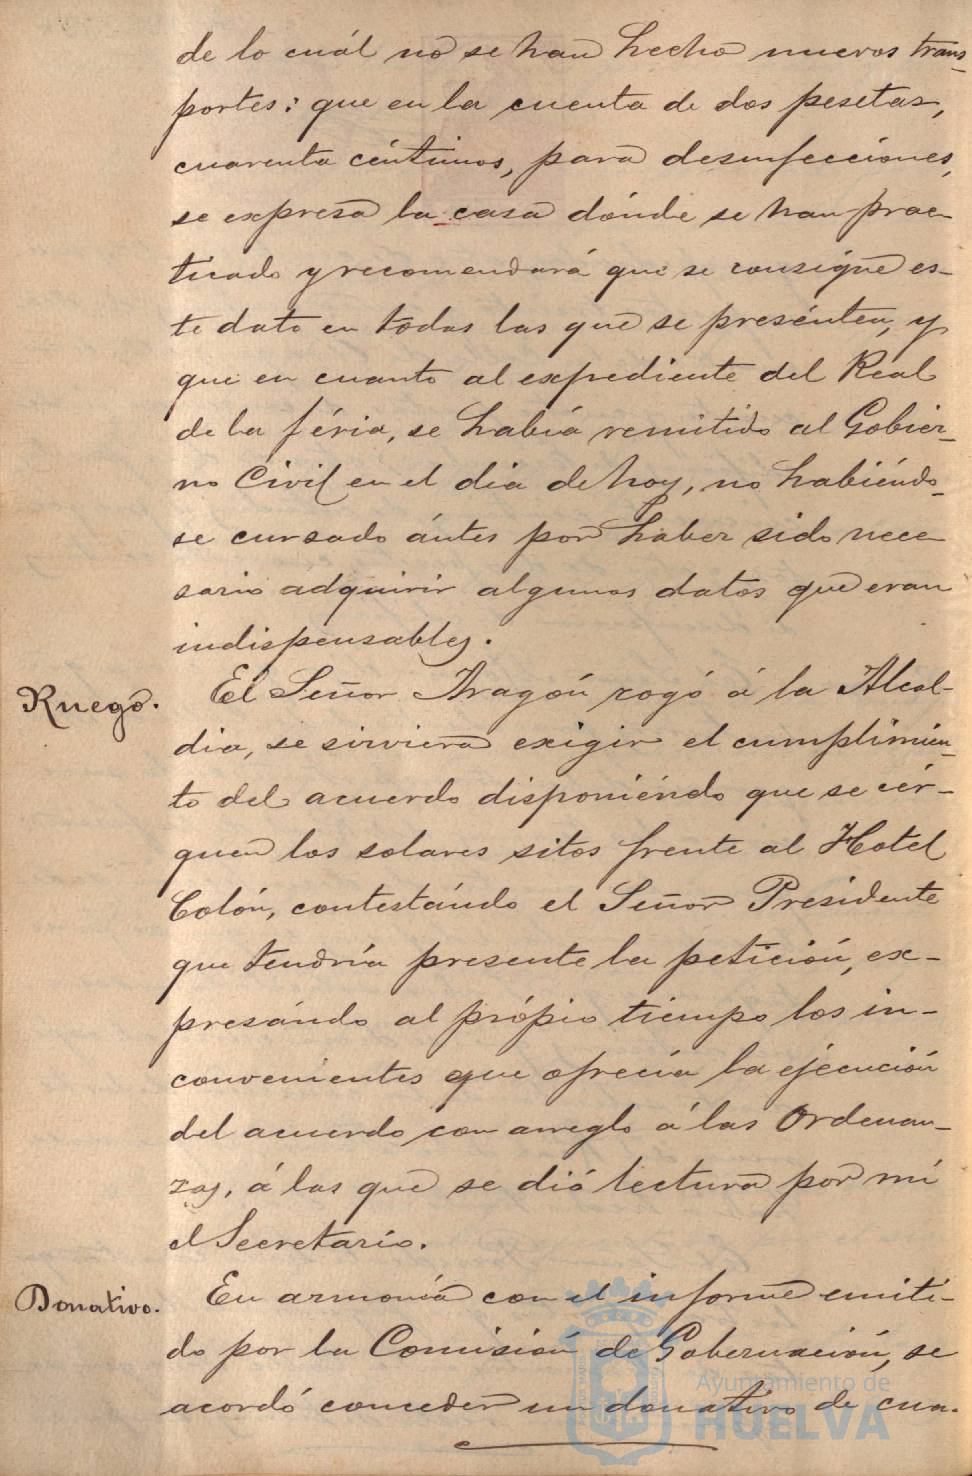 de lo cuál no se han hecho nuevos trans-
portes: que en la cuenta de dos pesetas,
cuarenta céntimos, para desinfecciones,
se expresa la casa dónde se han prac-
ticado y recomendará que se consigne es-
te dato en todas las que se presénten, y
que en cuanto al expediente del Real
de la féria, se había remitido al Gobier-
no Civil en el dia de hoy, no habiéndo-
se cursado ántes por haber sido nece
sario adquirir algunos datos que eran
indispensables.
Ruego. El Señor Aragón rogó á la Alcal-
dia, se sirviera exigir el cumplimien-
to del acuerdo disponiéndo que se cér-
quen los solares sitos frente al Hotel
Colón, contestándo el Señor Presidente
que tendría presente la petición, ex-
presándo al própio tiempo los in-
convenientes que ofrecía la ejecución
del acuerdo con arreglo á las Ordenan-
zas, á las que se dió lectura por mí
el Secretario.
Donativo. En armonía con el informe emiti-
do por la Comisión de Gobernación, se
acordó conceder un donativo de cua-
Ayuntamiento de
HUELVA